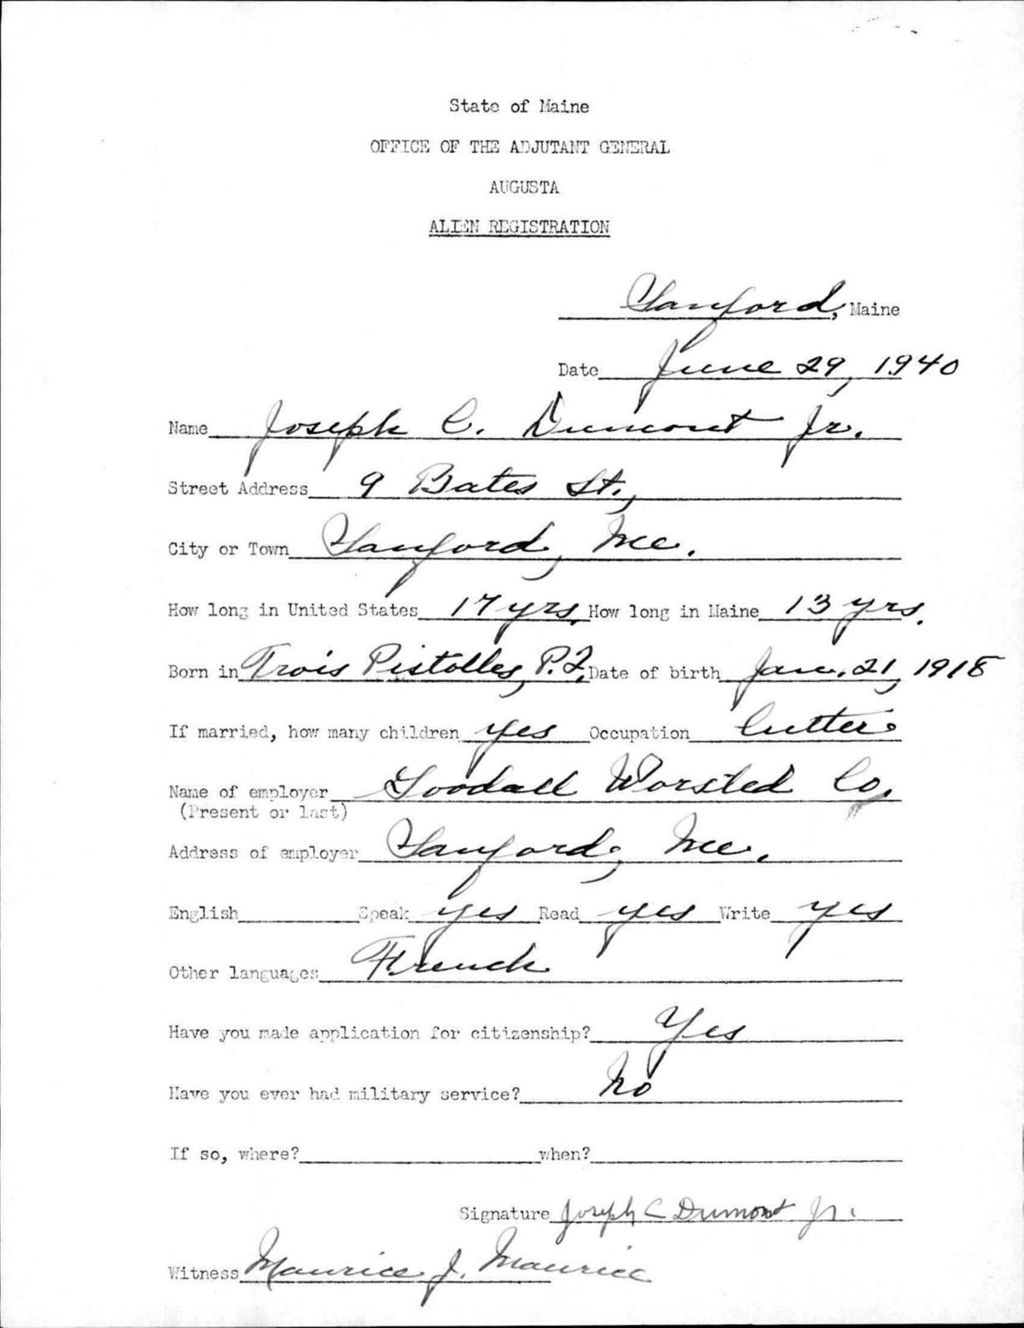 State of Maine
OFFICE OF THE ADJUTANT GENERAL
AUGUSTA
ALIEN REGISTRATION
Sanford, Maine
Date June 29, 1940
Name Joseph C. Dumont Jr.
Street Address 9 Bates St.,
City or Town Sanford, Me.
How long in United States 17 yrs. How long in Maine 13 yrs.
Born in Trois Pistolles, P.Q. Date of birth Jan. 21, 1918
If married, how many children yes Occupation Cutter
Name of employer Goodall Worsted Co.
(Present or last)
Address of employer Sanford, Me.
English Speak yes Read yes Write yes
Other languages French
Have you made application for citizenship? Yes
Have you ever had military service? No
If so, where? when?
Signature Joseph C Dumont Jr.
Witness Maurice J. Maurice